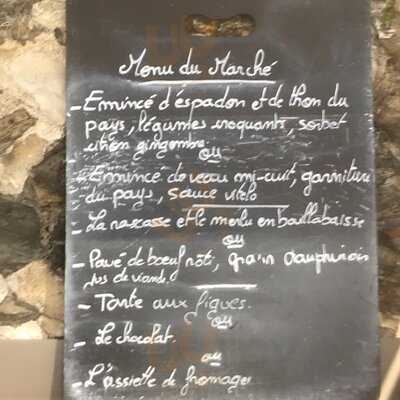 Menu du Marché
- Emincé d'espadon et de thon du
pays, légumes croquants, sorbet
citron gingembre
ou
- Emincé de veau mi-cuit, garniture
du pays, sauce vitelo
- La rascasse et le merlu en baillabaisse
ou
- Pavé de bœuf rôti, gratin Dauphinois
jus de viande.
- Tarte aux figues.
ou
- Le chocolat.
ou
- L'assiette de fromages